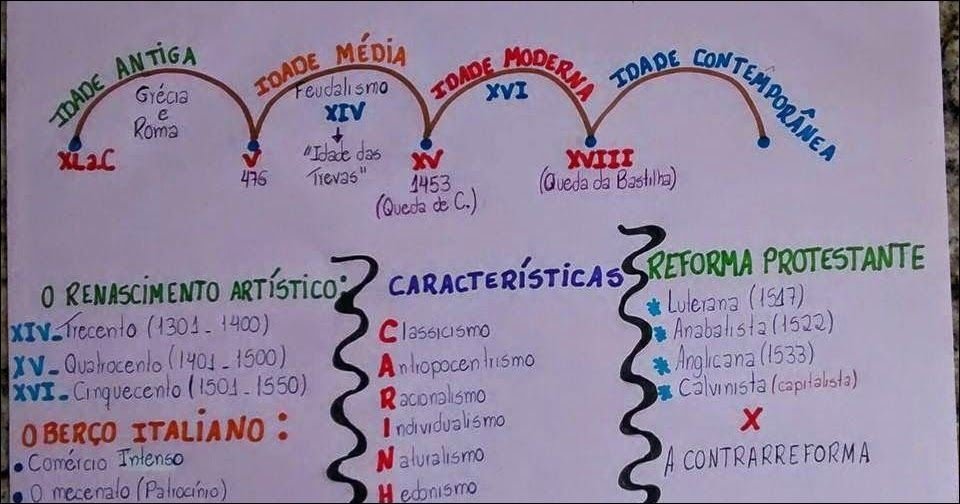 IDADE ANTIGA
Grécia
e
Roma
XL a.C
IDADE MÉDIA
Feudalismo
XIV
"Idade das
Trevas"
V
476
IDADE MODERNA
XVI
XV
1453
(Queda de C.)
IDADE CONTEMPORÂNEA
XVIII
(Queda da Bastilha)
O RENASCIMENTO ARTÍSTICO:
XIV_ Trecento (1301_1400)
XV_ Quatrocento (1401_1500)
XVI_ Cinquecento (1501_1550)
O BERÇO ITALIANO:
• Comércio Intenso
• O mecenato (Patrocínio)
CARACTERÍSTICAS
Classicismo
Antropocentrismo
Racionalismo
Individualismo
Naturalismo
Hedonismo
REFORMA PROTESTANTE
* Luterana (1517)
* Anabatista (1522)
* Anglicana (1533)
* Calvinista (capitalista)
X
A CONTRARREFORMA